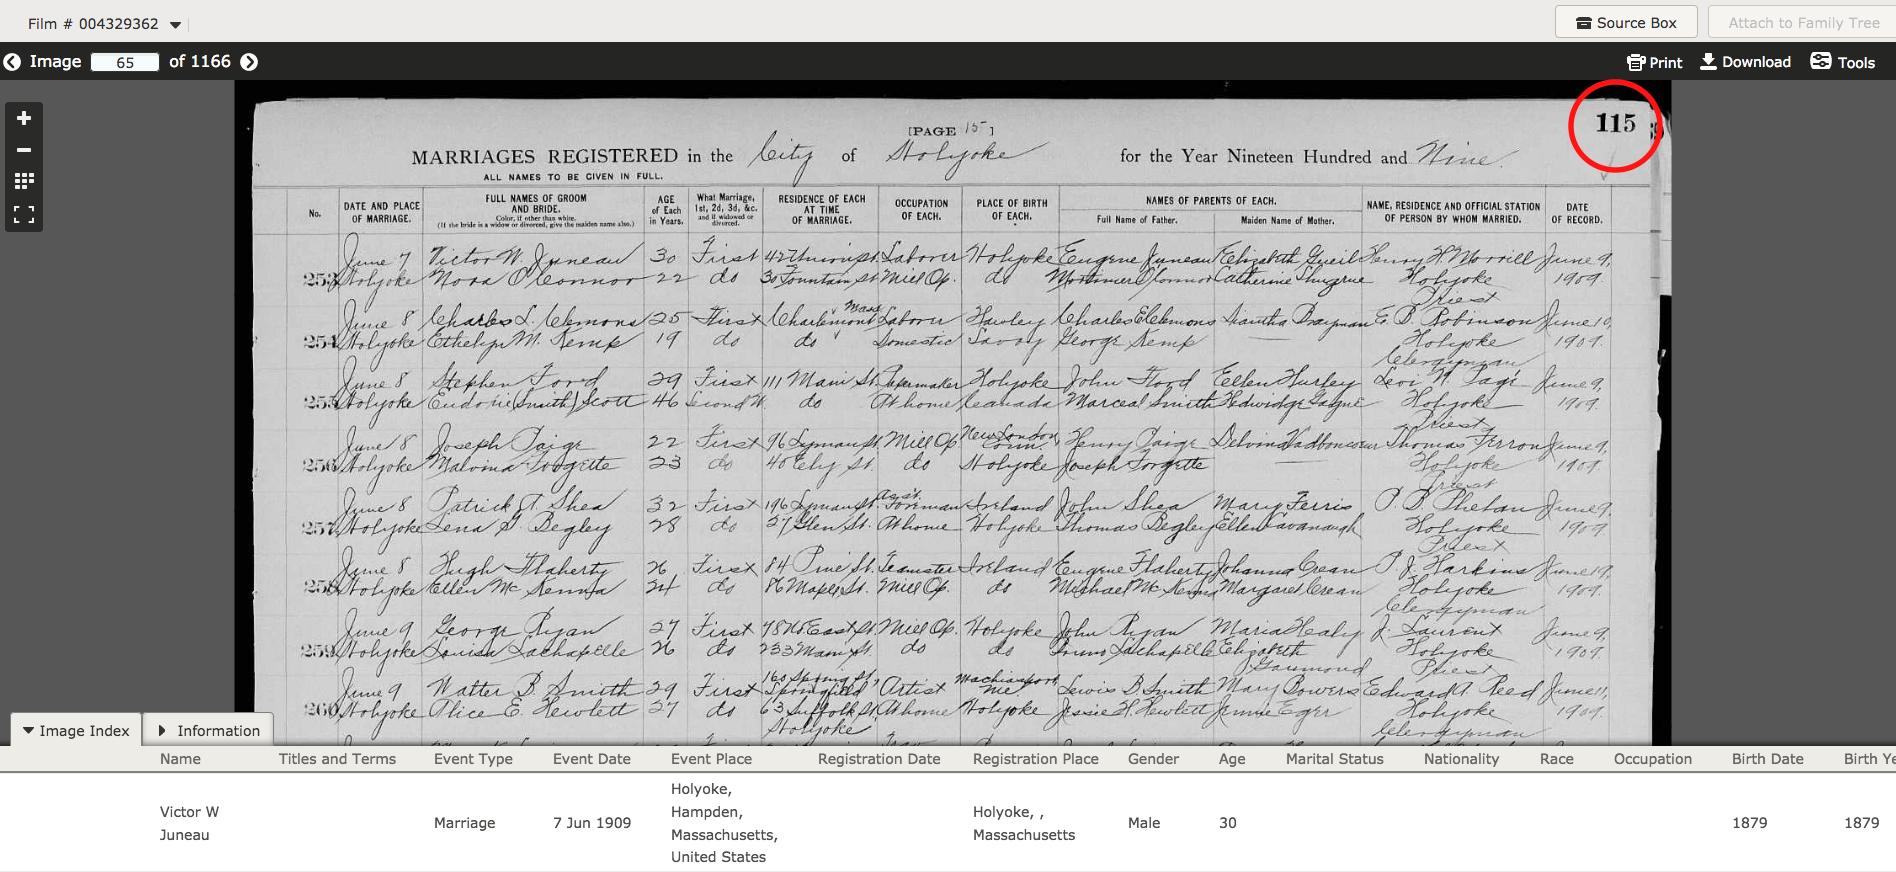 Film # 004329362
Source Box
Attach to Family Tree
Image 65 of 1166
Print Download Tools
115
[PAGE 15]
MARRIAGES REGISTERED in the City of Holyoke for the Year Nineteen Hundred and Nine.
ALL NAMES TO BE GIVEN IN FULL.
No.
DATE AND PLACE OF MARRIAGE.
FULL NAMES OF GROOM AND BRIDE.
Color, if other than white.
(If the bride is a widow or divorced, give the maiden name also.)
AGE of Each in Years.
What Marriage, 1st, 2d, 3d, &c. and if widowed or divorced.
RESIDENCE OF EACH AT TIME OF MARRIAGE.
OCCUPATION OF EACH.
PLACE OF BIRTH OF EACH.
NAMES OF PARENTS OF EACH.
Full Name of Father.
Maiden Name of Mother.
NAME, RESIDENCE AND OFFICIAL STATION OF PERSON BY WHOM MARRIED.
DATE OF RECORD.
June 7 Victor W. Juneau 30 First 42 Union St. Laborer Holyoke Eugene Juneau Elizabeth Henry H. Morrill June 9,
253 Holyoke Nora O'Connor 22 do 30 Fountain St. Mill Op. do Mortimer O'Connor Catherine Holyoke 1909.
Priest
June 8 Charles L. Clemons 25 First Charlemont Mass Laborer Hawley Charles E Clemons E. B. Robinson June 10,
254 Holyoke Ethelyn M. Kemp 19 do do Domestic Savoy George Kemp Holyoke 1909.
Clergyman
June 8 Stephen Ford 29 First 111 Main St. Papermaker Holyoke John Flood Ellen Hurley June 9,
255 Holyoke Eudoxie (Smith) Scott 46 Second W. do At home Canada Marceal Smith Hedwidge Holyoke 1909.
Priest
June 8 Joseph Paige 22 First 96 Lyman St. Mill Op. New London, Conn. Henry Paige Delvina Vadboncoeur Thomas Ferron June 9,
256 Holyoke Malvina Forgette 23 do 40 Ely St. do Holyoke Joseph Forgette Holyoke 1909.
Priest
June 8 Patrick Shea 32 First 196 Lyman St. Ass't. Foreman Ireland John Shea Mary Ferris P. B. Phelan June 9,
257 Holyoke Lena G. Begley 28 do 27 Glen St. At home Holyoke Thomas Begley Ellen Cavanaugh Holyoke 1909.
Priest
June 8 Hugh Flaherty 26 First 84 Pine St. Teamster Ireland Eugene Flaherty Johanna Crean P. J. Harkins June 19,
258 Holyoke Ellen McKenna 24 do 86 Maple St. Mill Op. do Michael McKenna Margaret Crean Holyoke 1909.
Clergyman
June 9 George Ryan 27 First 78 No. East St. Mill Op. Holyoke John Ryan Maria Healy J. Laurent June 9,
259 Holyoke Louisa Lachapelle 26 do 233 Main St. do do Lachapelle Elizabeth Holyoke 1909.
Priest
June 9 Walter B. Smith 29 First 160 Spring St., Springfield Artist Machiasport, Me. Lewis B. Smith Mary Bowers Edward A. Reed June 11,
260 Holyoke Alice E. Hewlett 27 do 63 Suffolk St., Holyoke At home Holyoke Jessie H. Hewlett Jennie Eger Holyoke 1909.
Clergyman
Image Index Information
Name Titles and Terms Event Type Event Date Event Place Registration Date Registration Place Gender Age Marital Status Nationality Race Occupation Birth Date Birth Ye
Victor W Juneau Marriage 7 Jun 1909 Holyoke, Hampden, Massachusetts, United States Holyoke, , Massachusetts Male 30 1879 1879